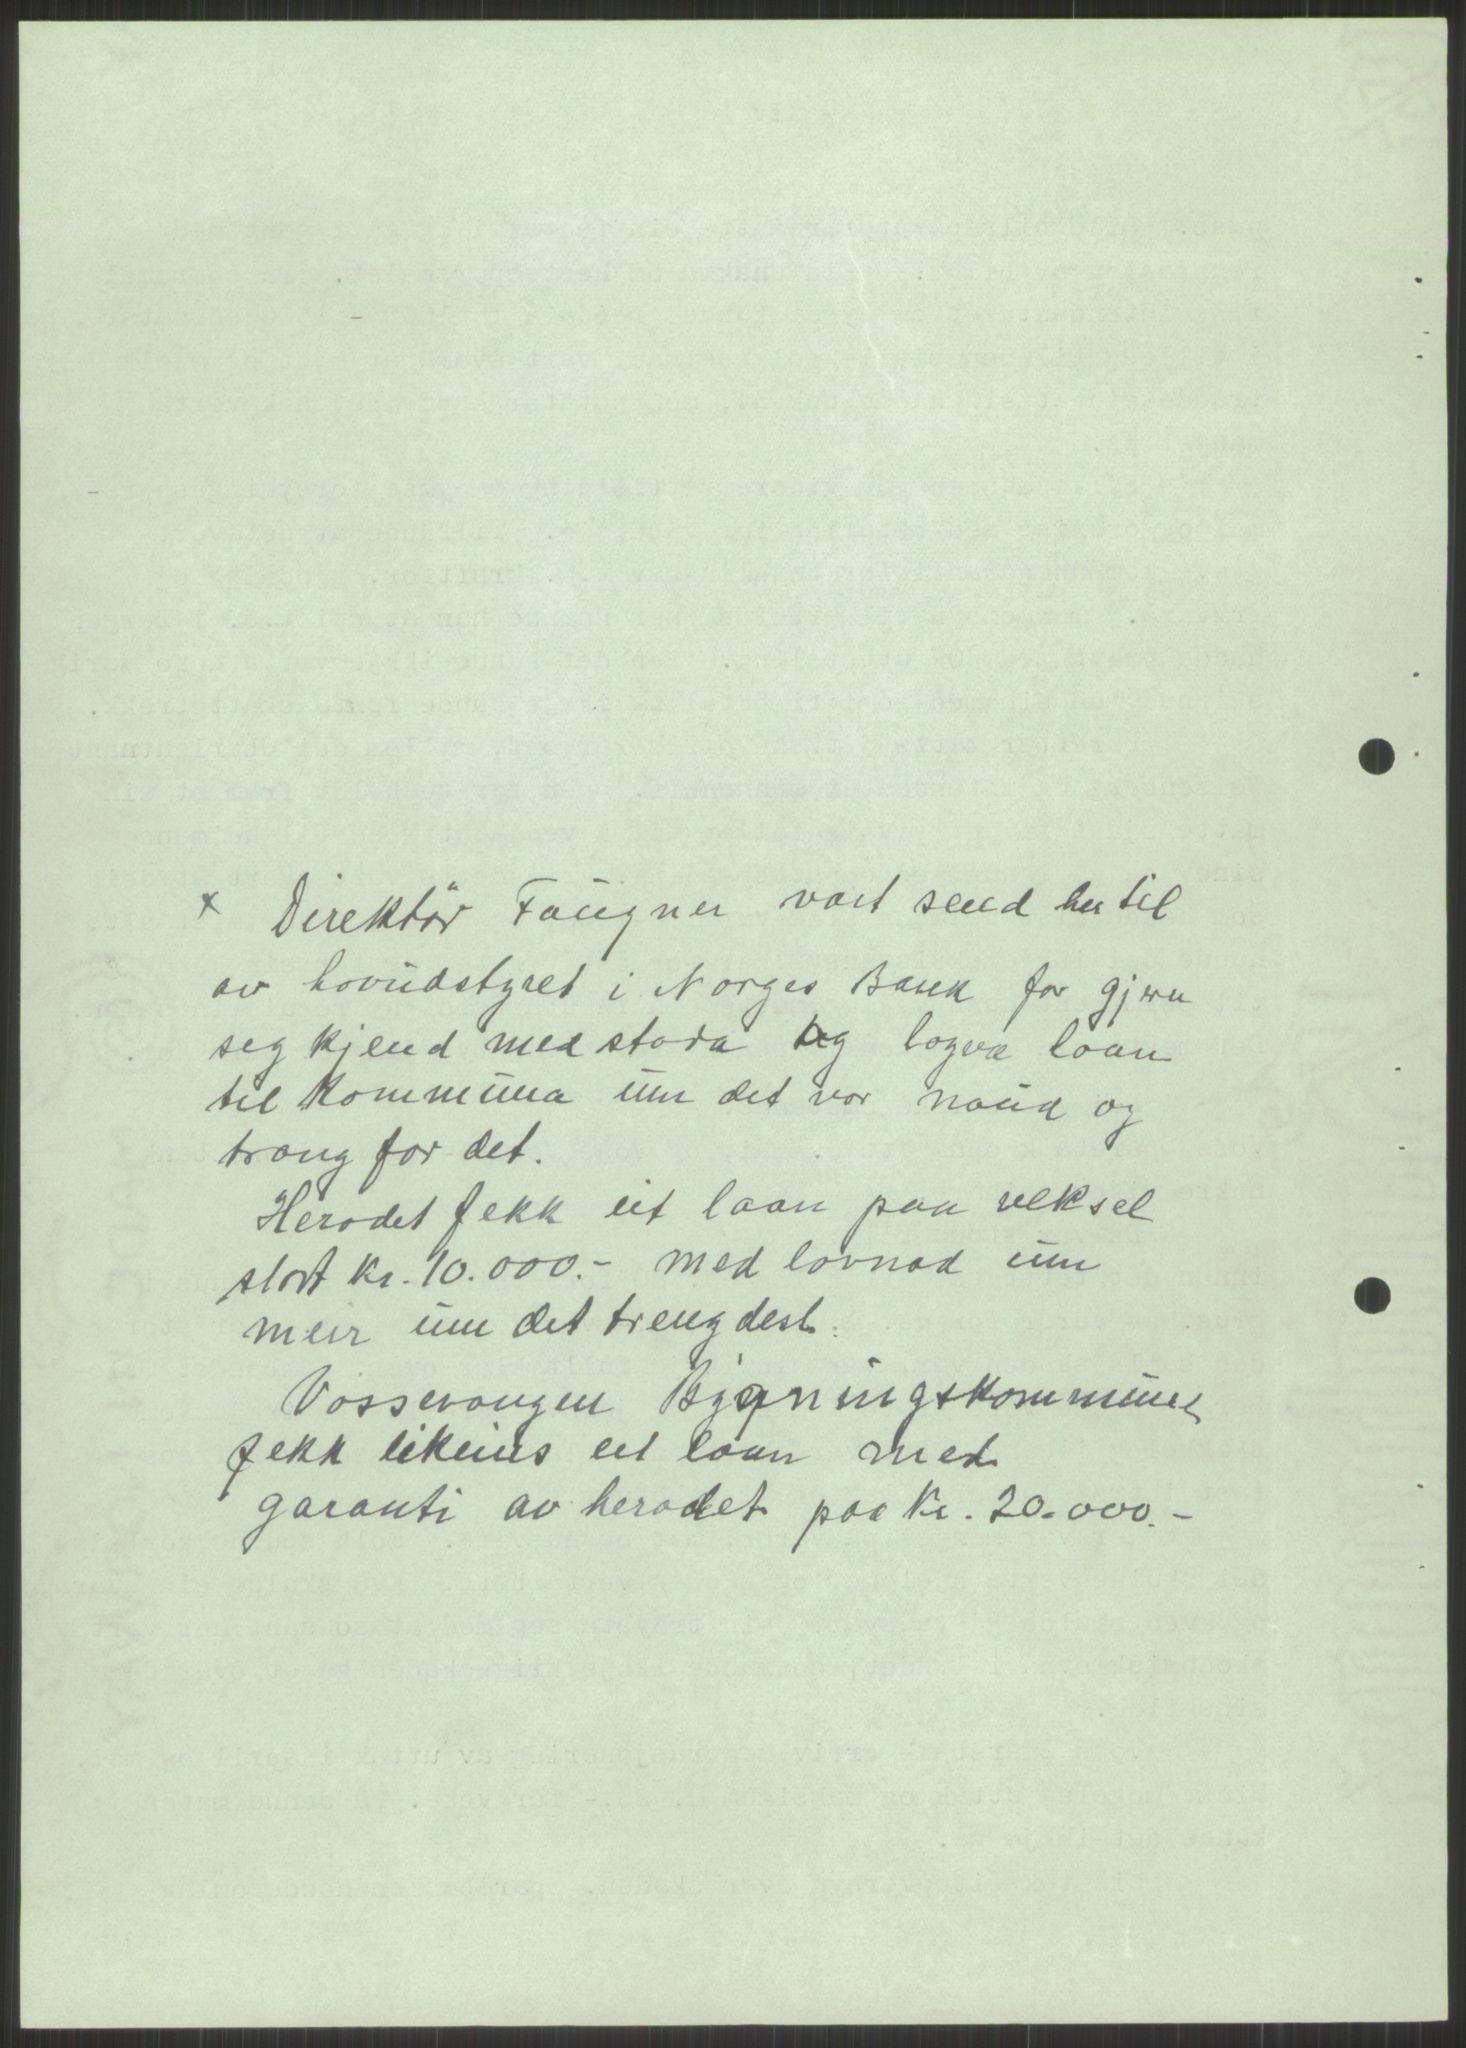 x Direktör Faugner vart send her til
av hovudstyret i Norges Bank for gjera
seg kjend med stoda og logva laan
til kommuna um det var naud og
trong for det.
Heradet fekk eit laan paa veksel
stort kr. 10.000.- med lovnad um
meir um det trengdest.
Vossevangen Bygningskommune
fekk likeins eit laan med
garanti av heradet paa kr. 20.000.-